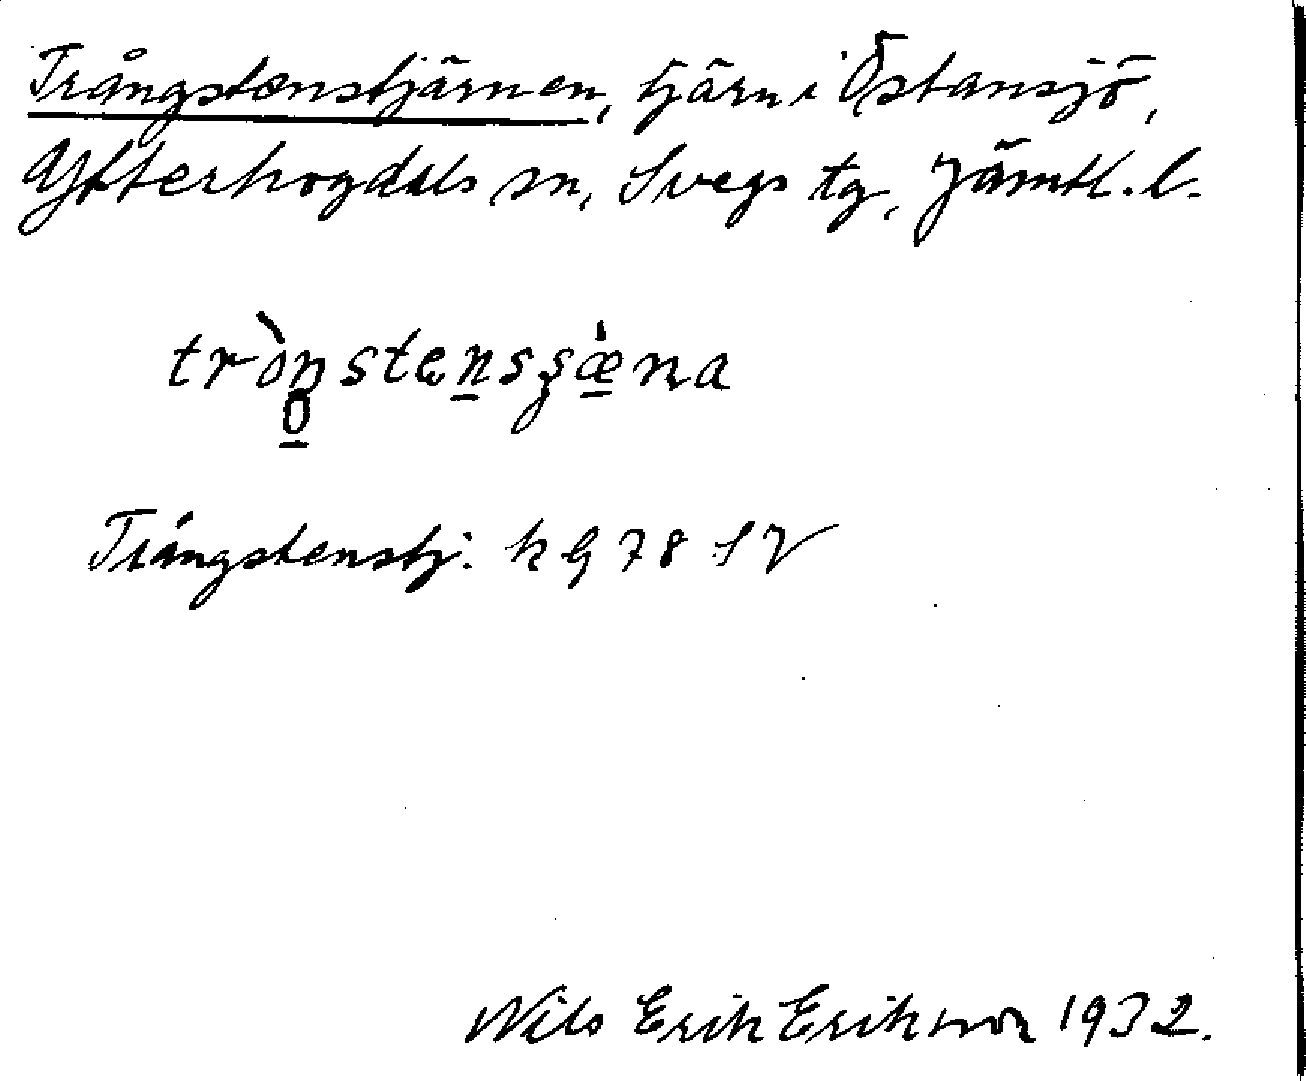 Trångstenstjärnen, tjärn i Östansjö,
Ytterhogdals sn, Svegs tg, Jämtl. l.
Trångstenstj. k G 78 SV
Nils Erik Erikson 1932.